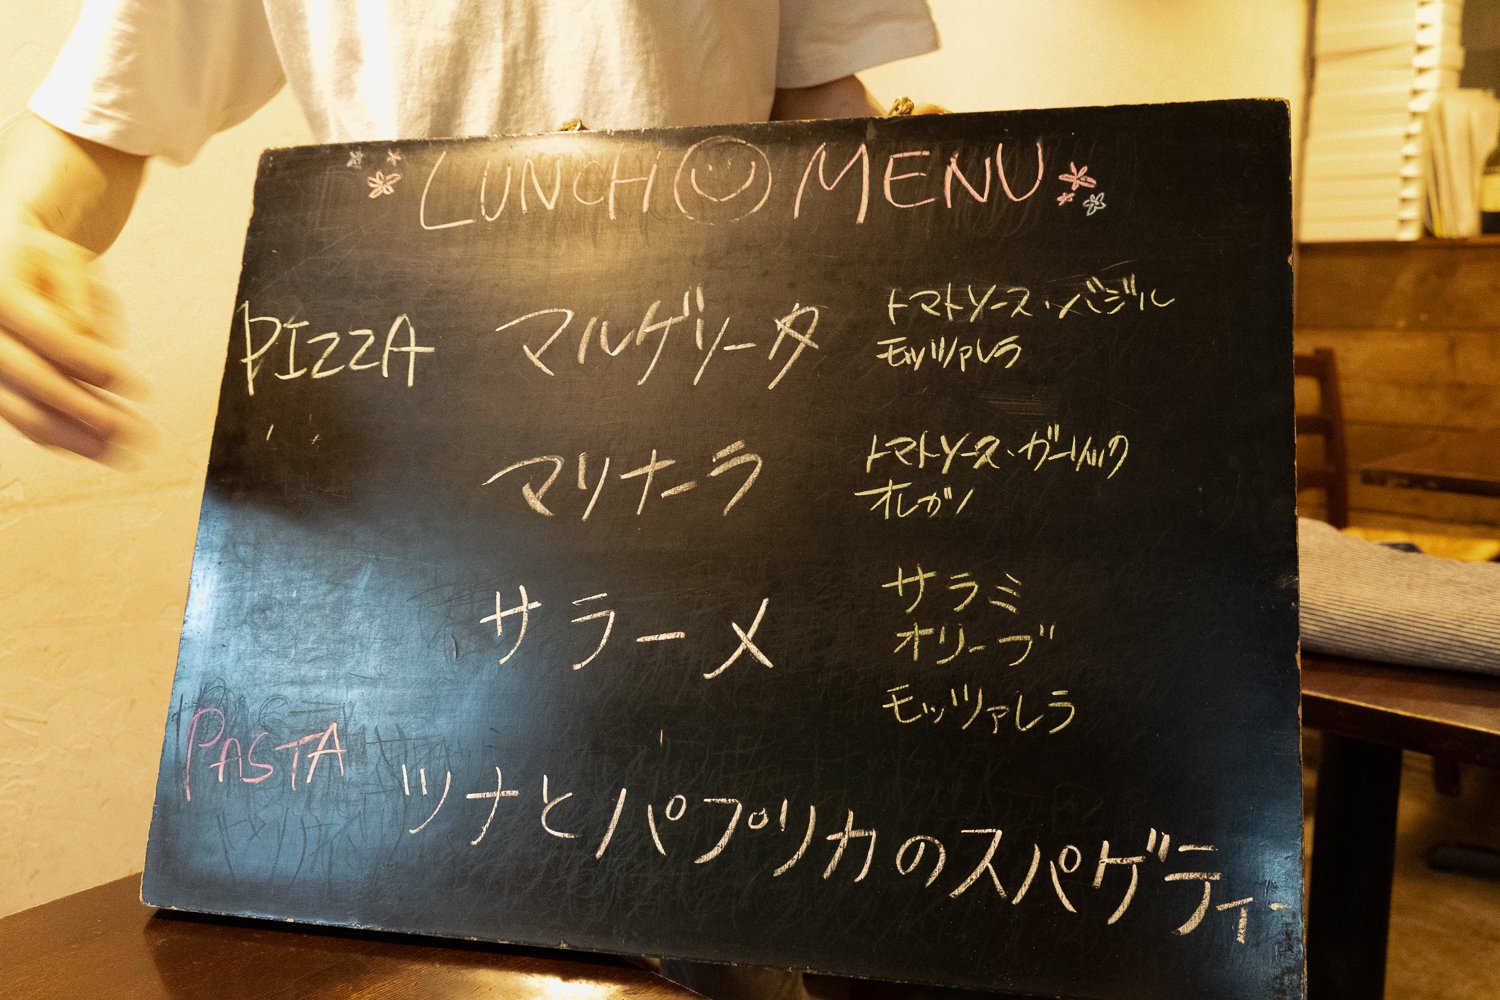 LUNCH MENU
PIZZA マルゲリータ トマトソース・バジル
モッツァレラ
マリナーラ トマトソース・ガーリック
オレガノ
サラーメ サラミ
オリーブ
モッツァレラ
PASTA ツナとパプリカのスパゲティー